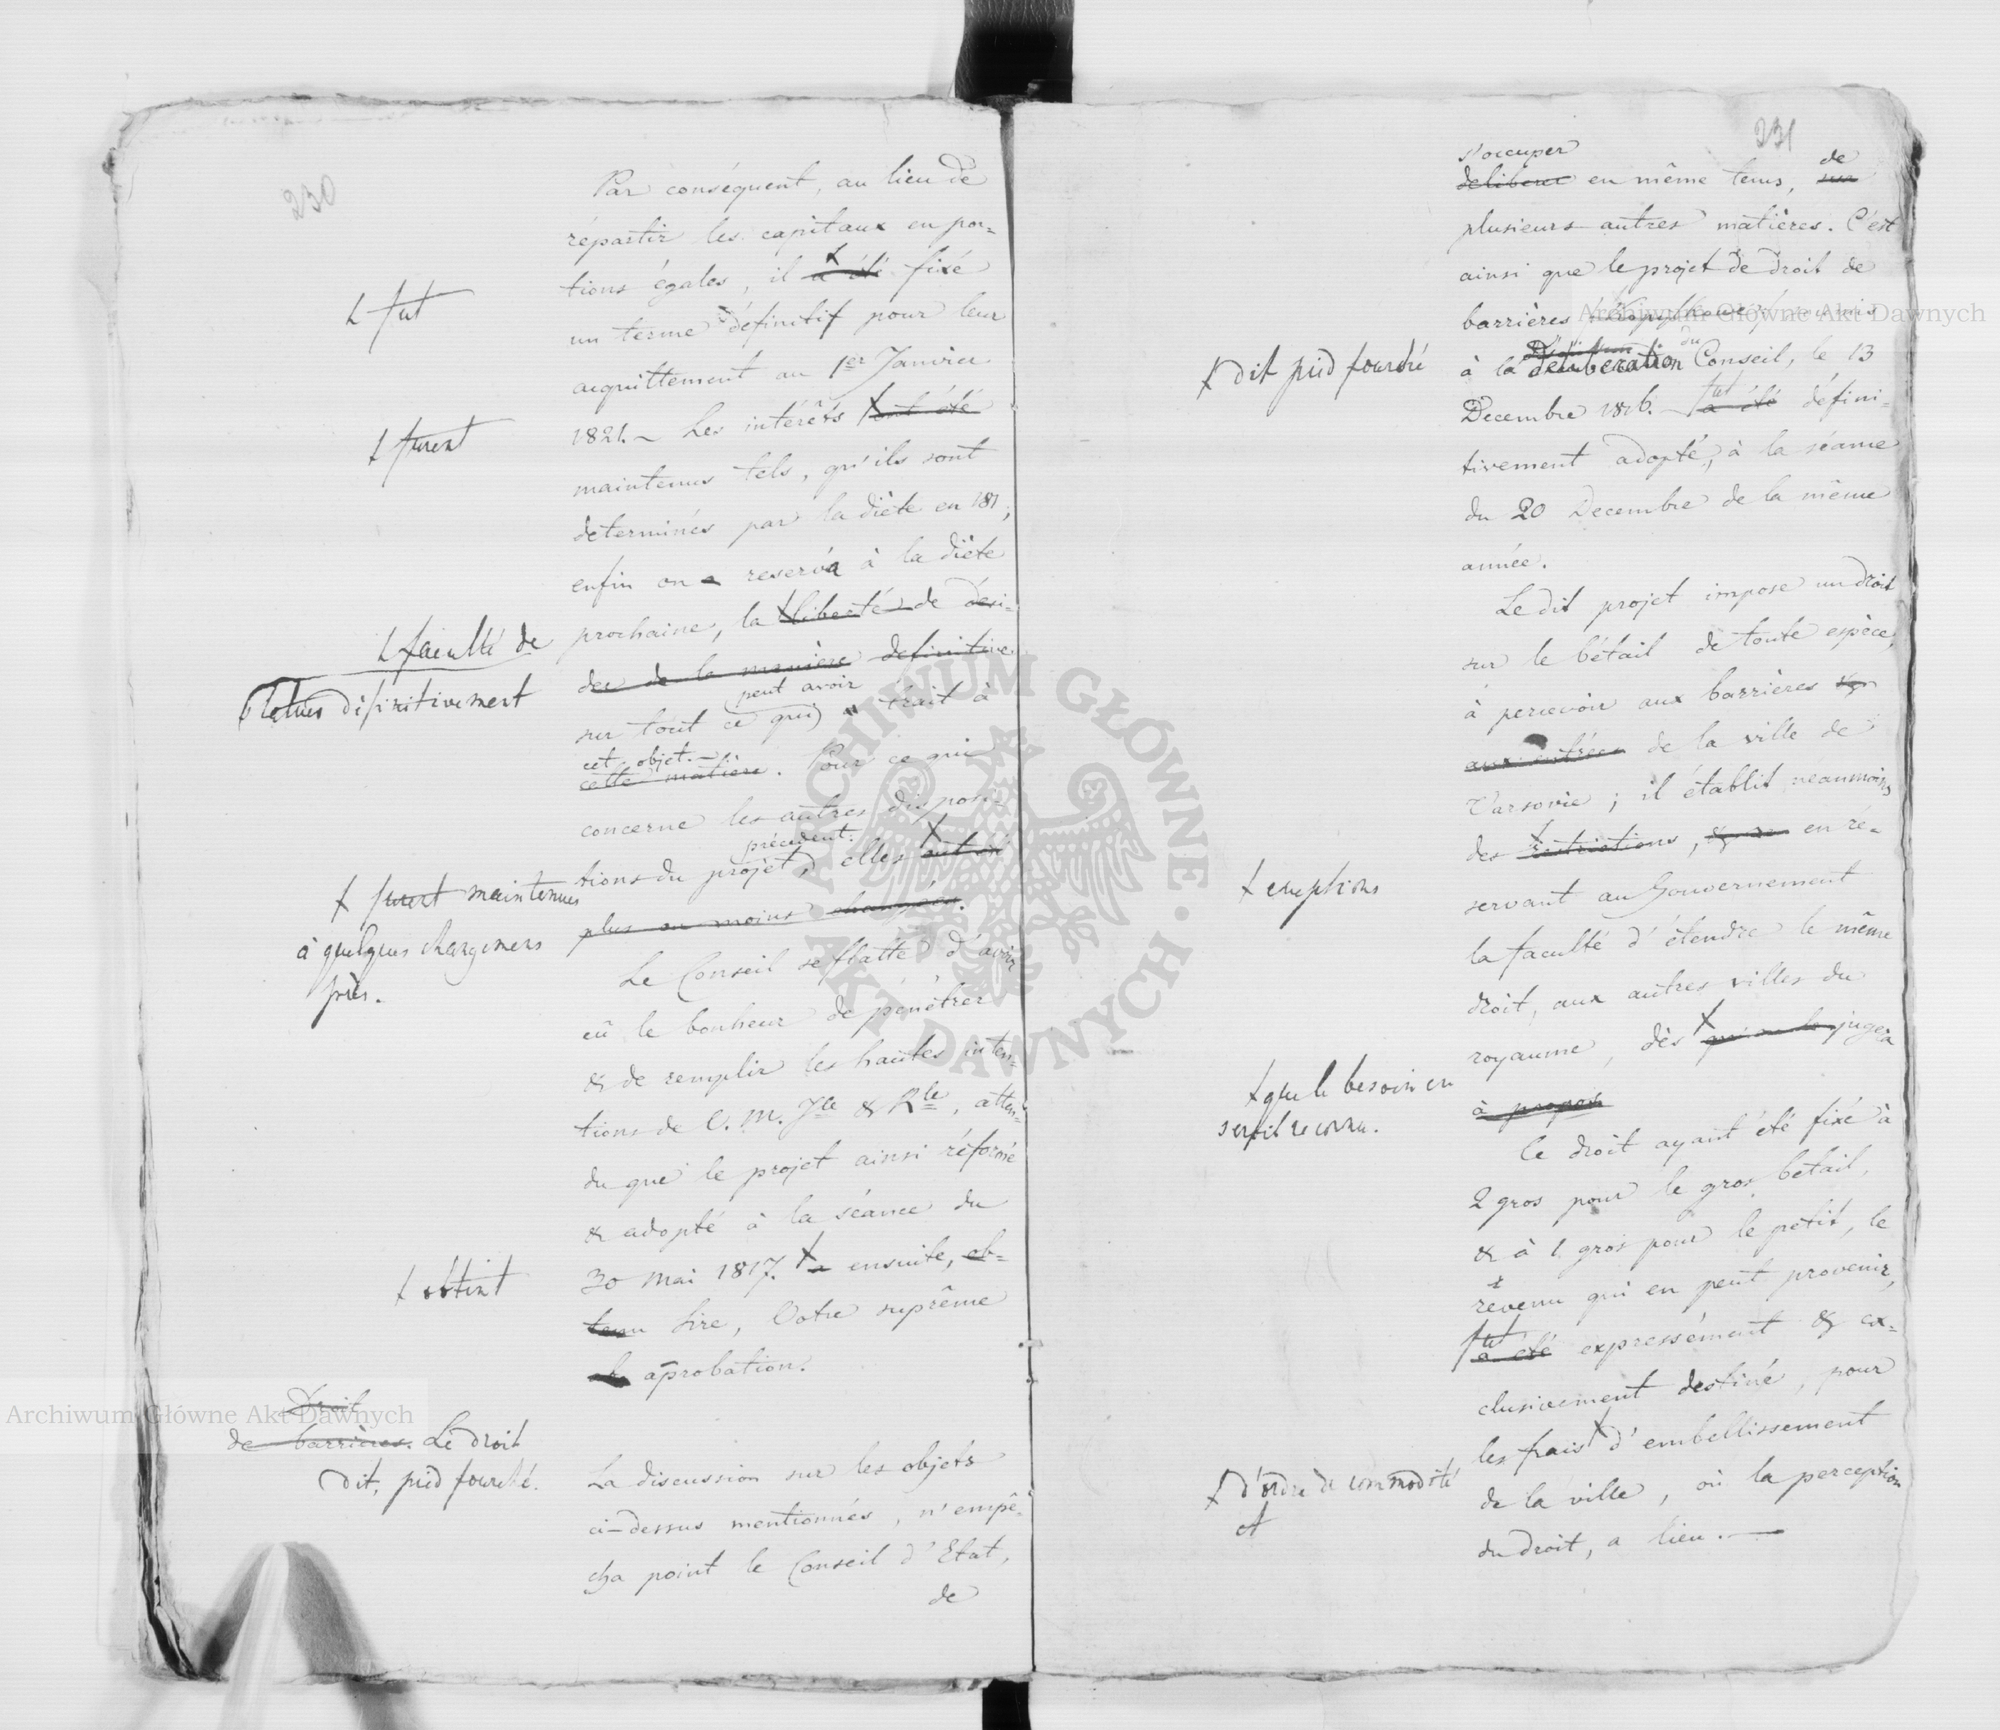 230
Par conséquent, au lieu de
répartir les capitaux en por=
tions égales, il a été fixé
ł fut
un terme définitif pour leur
acquittement au 1er Janvier
1821. ~ Les intérêts ont été
ł furent
maintenus tels, qu'ils sont
determinés par la diète en 181 ;
enfin on a reserva à la diète
prochaine, la liberté de déci=
ł faculté de
der de la manière definitive
statuer définitivement
peut avoir
sur tout ce qui a trait à
cet objet. ~
cette matière. Pour ce qui
concerne les autres disposi=
précédent:
tions du projet, elles ont été
ł furent maintenues
plus ou moins changées.
à quelques changemens
près.
Le Conseil se flatte d'avoir
eû le bonheur de pénétrer
& de remplir les hautes inten=
tions de V. M. Jle & Rle, atten=
du que le projet ainsi réformé
& adopté à la séance du
30 Mai 1817. a ensuite, ob=
ł obtint
tenu Sire, Votre suprême
aprobation.
Droit
de barrières. Le droit
dit, pied fourché.
La discussion sur les objets
ci-dessus mentionnés, n'empê=
cha point le Conseil d'Etat,
de
231
s'occuper de
deliberer en même tems, sur
plusieurs autres matières. C'est
ainsi que le projet de droit de
barrières soumis
ł dit pied fourché
du
à la déliberation Conseil, le 13
fut
Decembre 1816. a été défini=
tivement adopté, à la séance
du 20 Decembre de la même
année.
Le dit projet impose un droit
sur le bétail de toute espèce,
à percevoir aux barrières &
aux entrées de la ville de
Varsovie ; il établit neanmoins
des restrictions, en ré=
ł exceptions
servant au Gouvernement
la faculté d'étendre le même
droit, aux autres villes du
royaume, dès qu'on le jugera
ł que le besoin en
à propos
seroit reconnu.
Ce droit ayant été fixé à
2 gros pour le gros betail,
& à 1. gros pour le petit, le
revenu qui en peut provenir,
fut
a été expressément & ex=
clusivement destiné, pour
les frais d'embellissement
ł d'ordre de commodité
et
de la ville, où la perception
du droit, a lieu. —
Archiwum Główne Akt Dawnych
Archiwum Główne Akt Dawnych
ARCHIWUM GŁÓWNE · AKT DAWNYCH ·